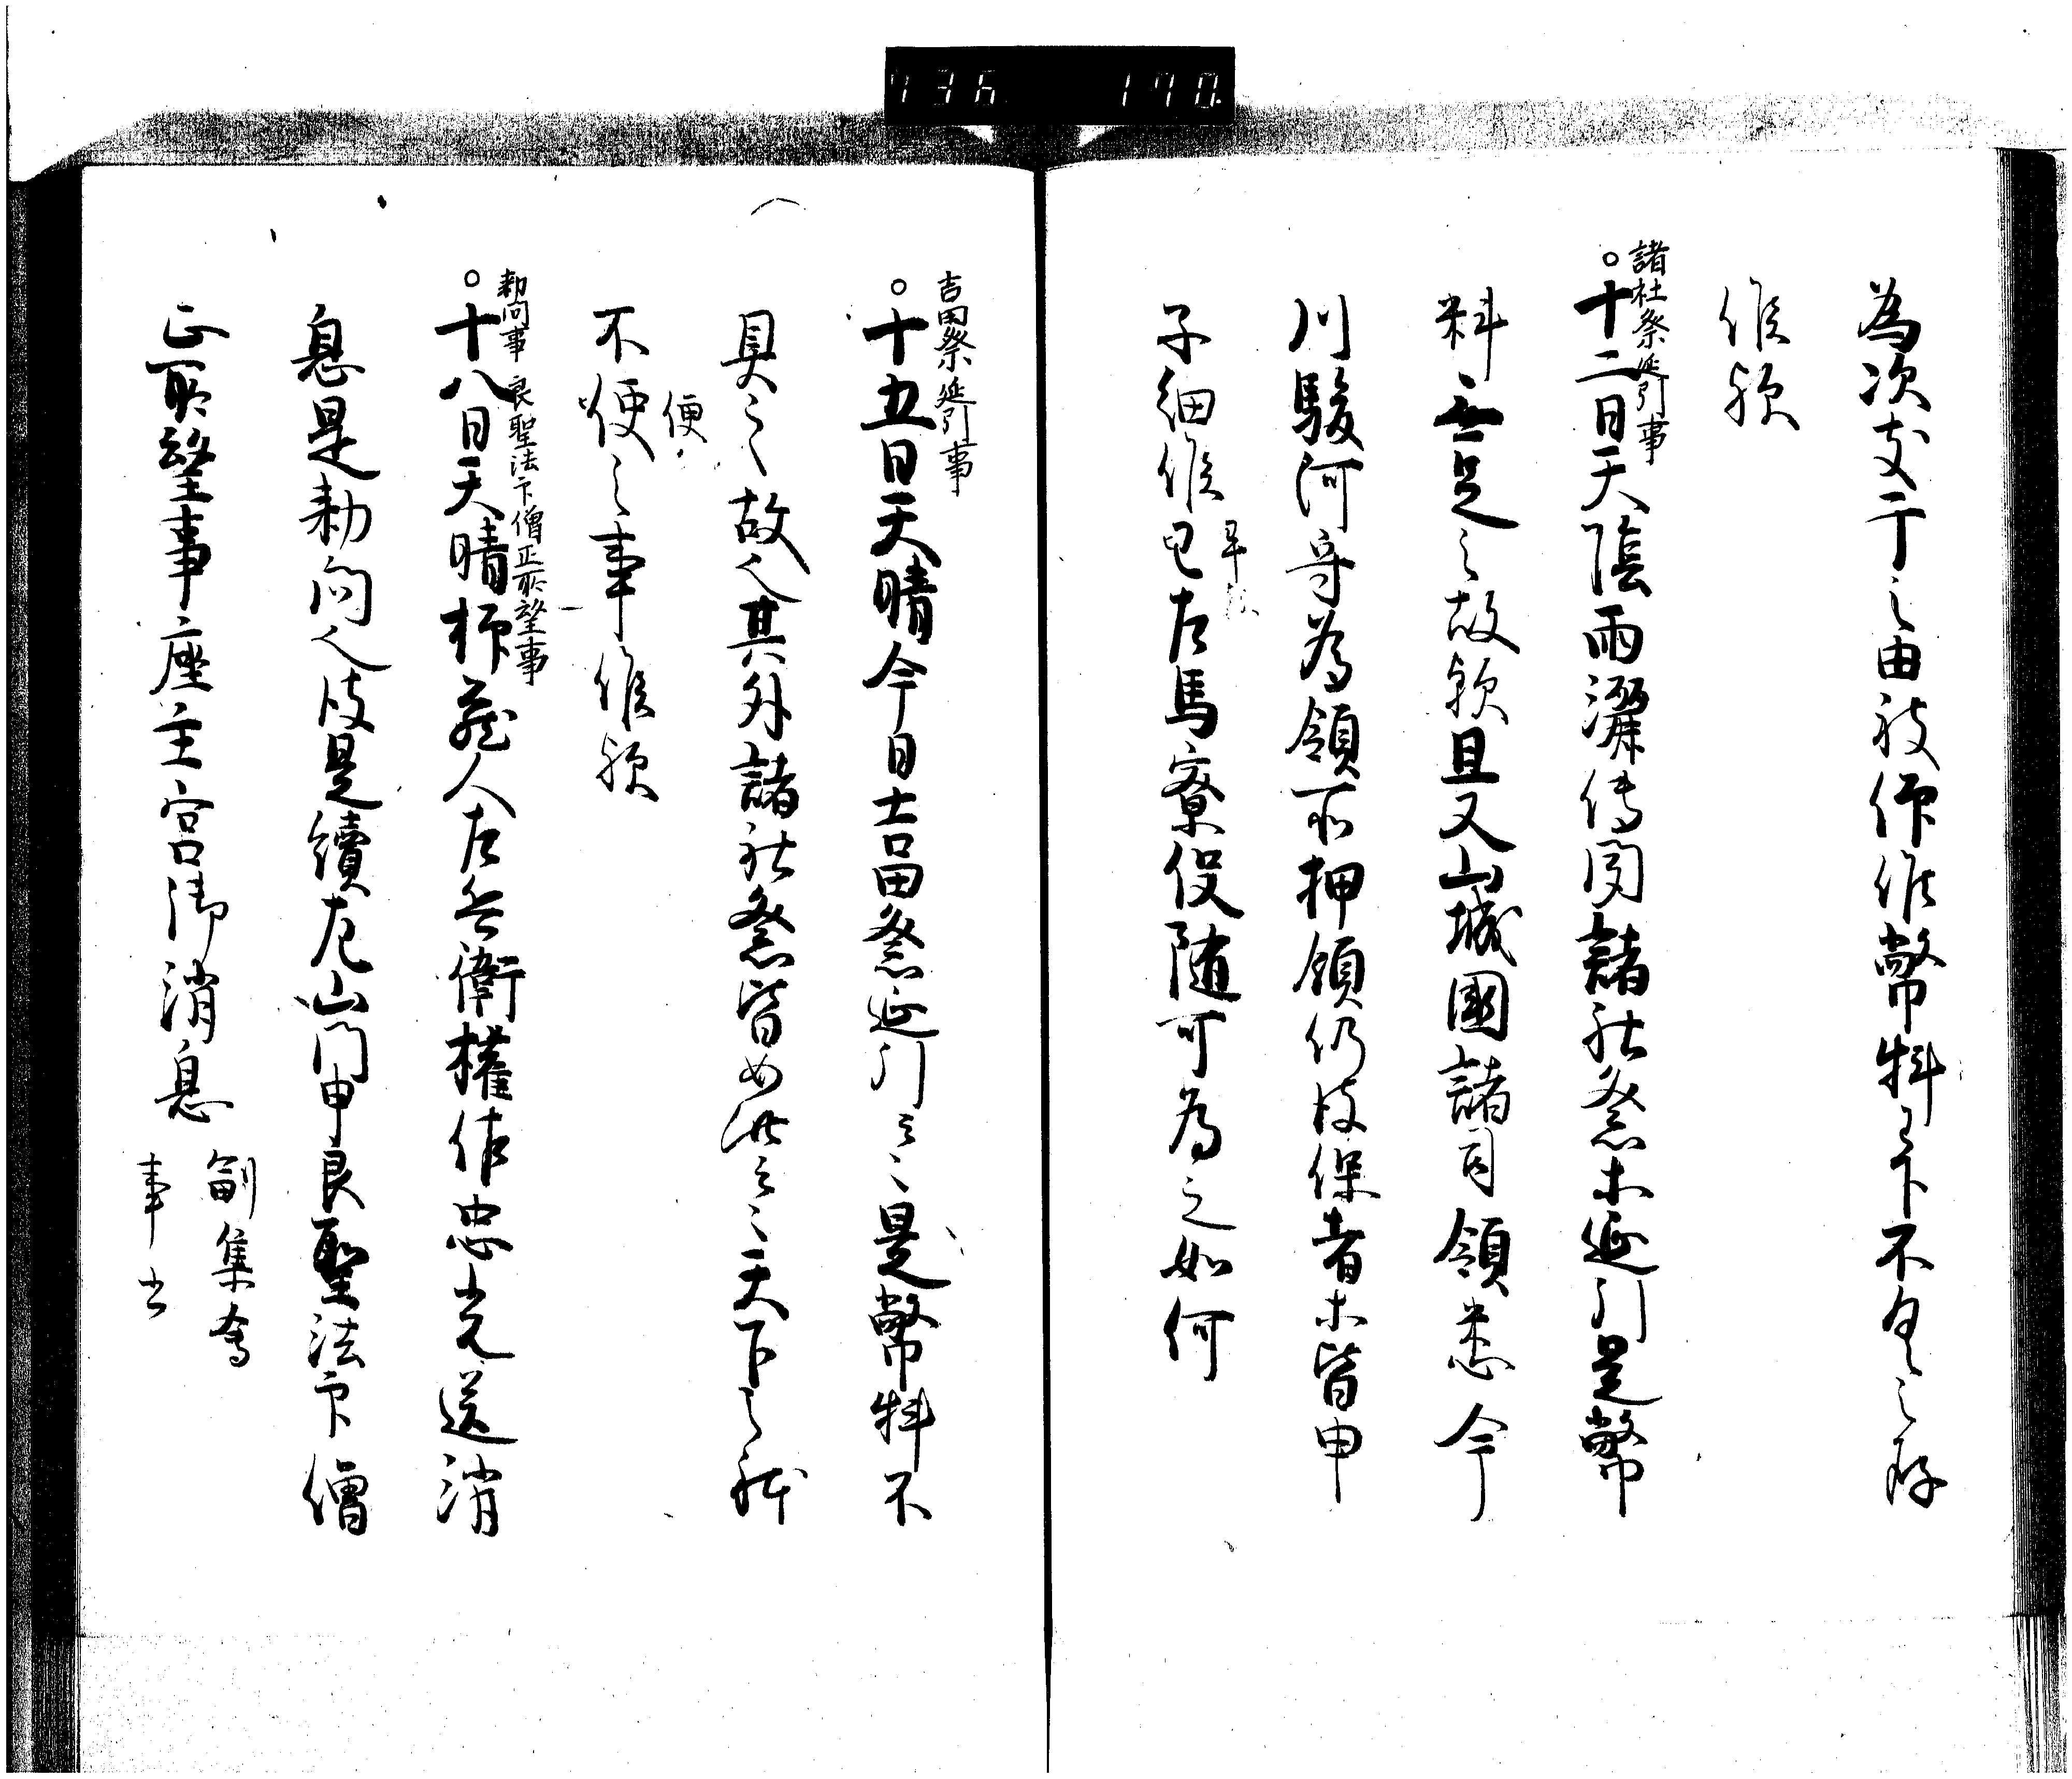 736 170
為次支干之由被仰候幣料下不具之段
候歟
諸社祭延引事
○十二日天陰雨灑伝聞諸社祭等延引是幣
料無足之故歟且又山城国諸司領悉今
川駿河守為領所押領仍彼保者等皆申
子細候已左馬寮役随可為之如何
吉田祭延引事
○十五日天晴今日吉田祭延引云々是幣料不
具之故也其外諸社祭皆如此云々天下之躰
便
不便之事候歟
勅問事 良聖法印僧正所望事
○十八日天晴抑蔵人左兵衛権佐忠光送消
息是勅問也彼是続左山門申良聖法印僧
正所望事座主宮御消息
副集会
事書